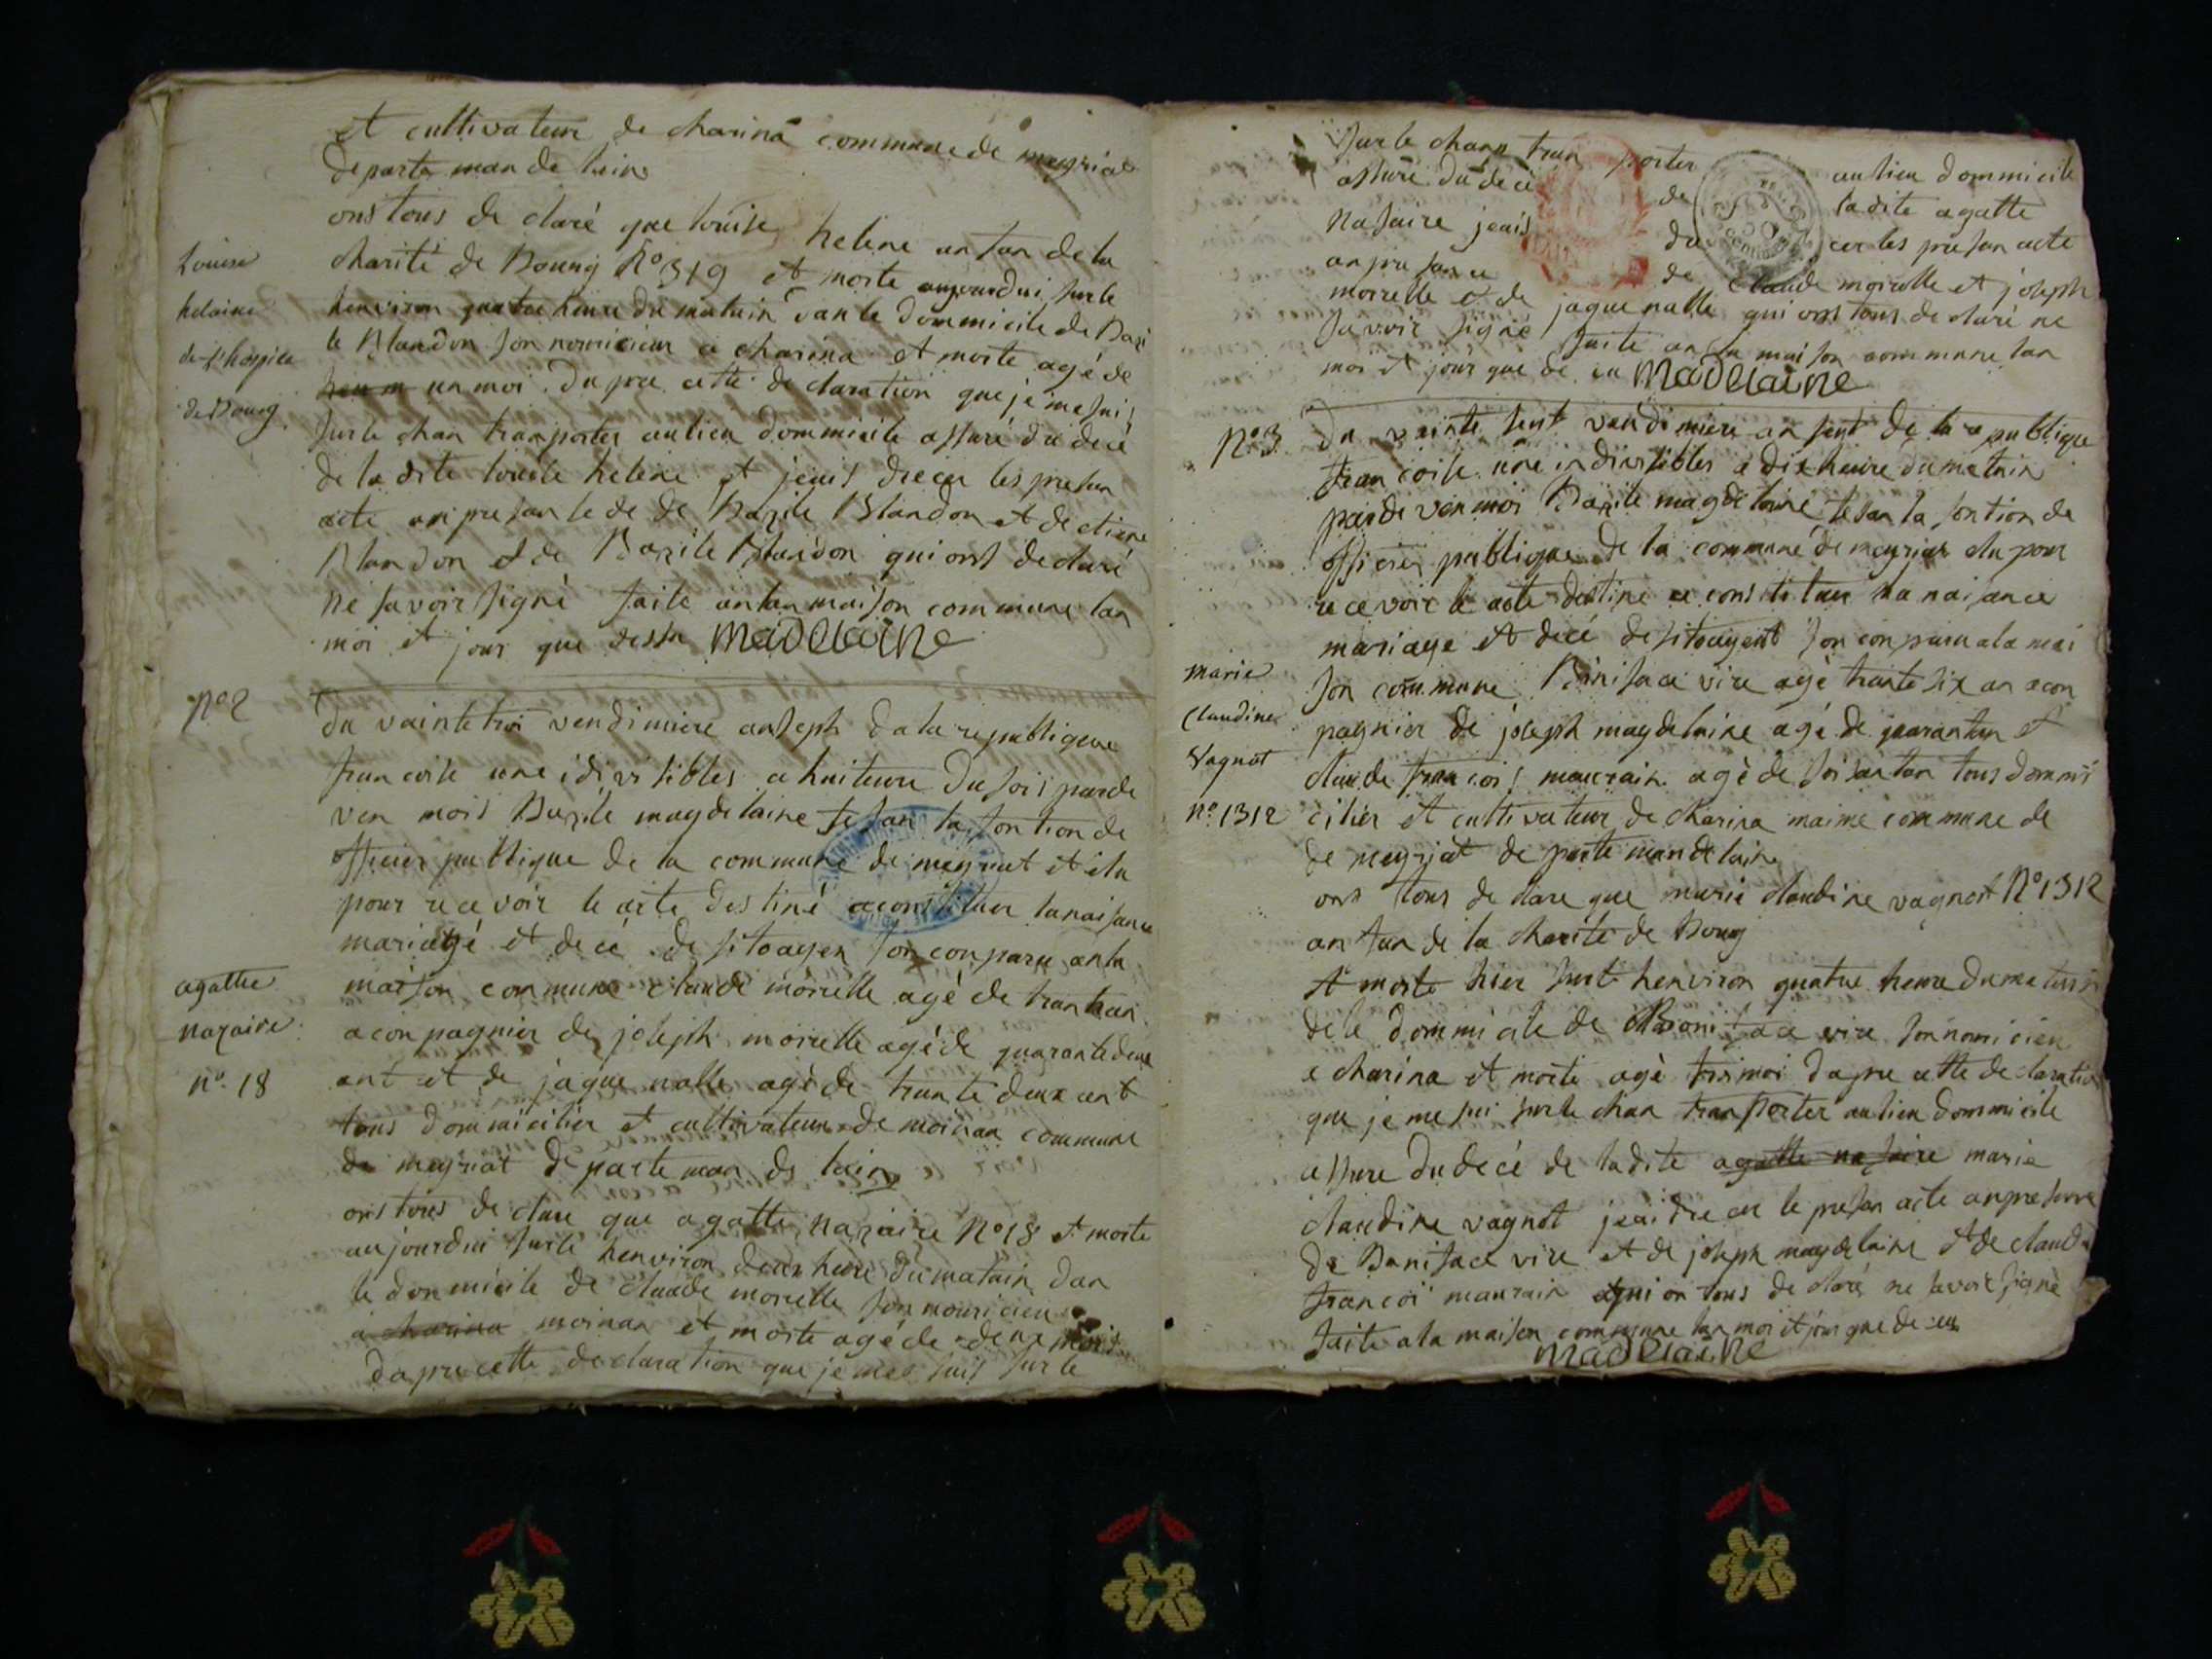 et cultivateur de charina commune de meyriat
departe man de lain
ons tous de claré que louise heleine anfan de la
Louise
helaine
de L'hospice
de Bourg
charité de Bourg No 319 et morte aujourdui surle
henviron quatre heure du matain dan le dommicile de Bazi
le Blandon son nouricieur a charina et morte agé de
un moi. Dapre cette de claration que je me suis
surle chan tranporter au lieu dommicile assuré du decé
de la dite louise helene et jeais drecer les presan
acte an presan se de de Bazile Blandon et de etiene
Blandon et de Bazile Blandon qui ons declaré
ne savoir signé faite an lan maison commune lan
moi et jour que dessu Madelaine
No 2
Du vainte troi vendimiere an seph dela republiqeue
francoise une idivisibles a huiteure du soir parde
ven mois Bazile magdelaine fesan la fontion de
officier publique de la commune de meyriat et élu
pour recevoir le acte destiné aconstituer lanaisance
mariagé et decé de sitoayen son conparu an la
agathe
nazaire
no. 18
maison commune claude moirelle agé de tran han
aconpagnier de joseph moirelle agé de quarantedeux
ant et de jaque nalle agé de trante deux ant
tous dommicilier et cultivateur de moinan commune
de meyriat departe man de lain
ons tous de clare que agatte nazaire No 18 et morte
aujourdui surle henviron deux heure du matain dan
le dommicile de claude moirelle son nouricieur
a charina moinan et morte agé de deux mois
dapre cette declaration que je me suis sur le
surle chann tran porter au lieu dommicile
assuré du decé de ladite agatte
nasaire jeais du cer les presan acte
an presance de claude moirelle et joseph
moirelle et de jaque nalle qui ons tous de claré ne
savoir signé faite an la maison commune lan
moi et jour que de su Madelaine
No 3
Du vainte sent vendimiere an sent de la republique
francoise une indivisibles a dix heure du matain
parde ven moi Bazile magdelaine fesan la fontion de
officier publique de la commune de meyriat elu pour
recevoir le acte destine a constituer la naisance
mariage et decé de sitoayent son conparu ala mai
marie
Claudine
Vagnot
no. 1312
son commune Bonisace vire agé trante six an acon
pagnier de joseph magdelaine agé de quarantan et
claude francois maurain agé de soisantan tous dommi
cilier et cultivateur de charina maime commune de
de meyriat de parte man de lain
ons tous de clare que marie claudine vagnot No 1312
anfan de la charité de Bourg
et morte hier surt henviron quatre heure du matain
de le dommicile de Boniface vire son nouricieu
a charina et morte agé troi moi dapre cette de claration
que je me sui surle chan tranporter au lieu dommicile
assure du decé de ladite agatte nasaire marie
claudine vagnot jeai drecer le presan acte an presance
de Bonifacé vire et de joseph magdelaine et de claude
francoi maurain qui on tous de claré ne savoir signé
faite ala maison commune lan moi et jour que de su
Madelaine